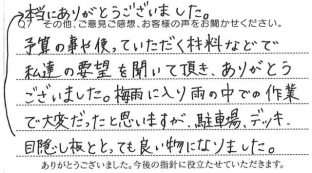 本当にありがとうございました。
Q7 その他、ご意見ご感想、お客様の声をお聞かせください。
予算の事や使っていただく材料などで
私達の要望を聞いて頂き、ありがとう
ございました。梅雨に入り雨の中での作業
で大変だったと思いますが、駐車場、デッキ、
目隠し板ととっても良い物になりました。
ありがとうございました。今後の指針に役立たせていただきます。